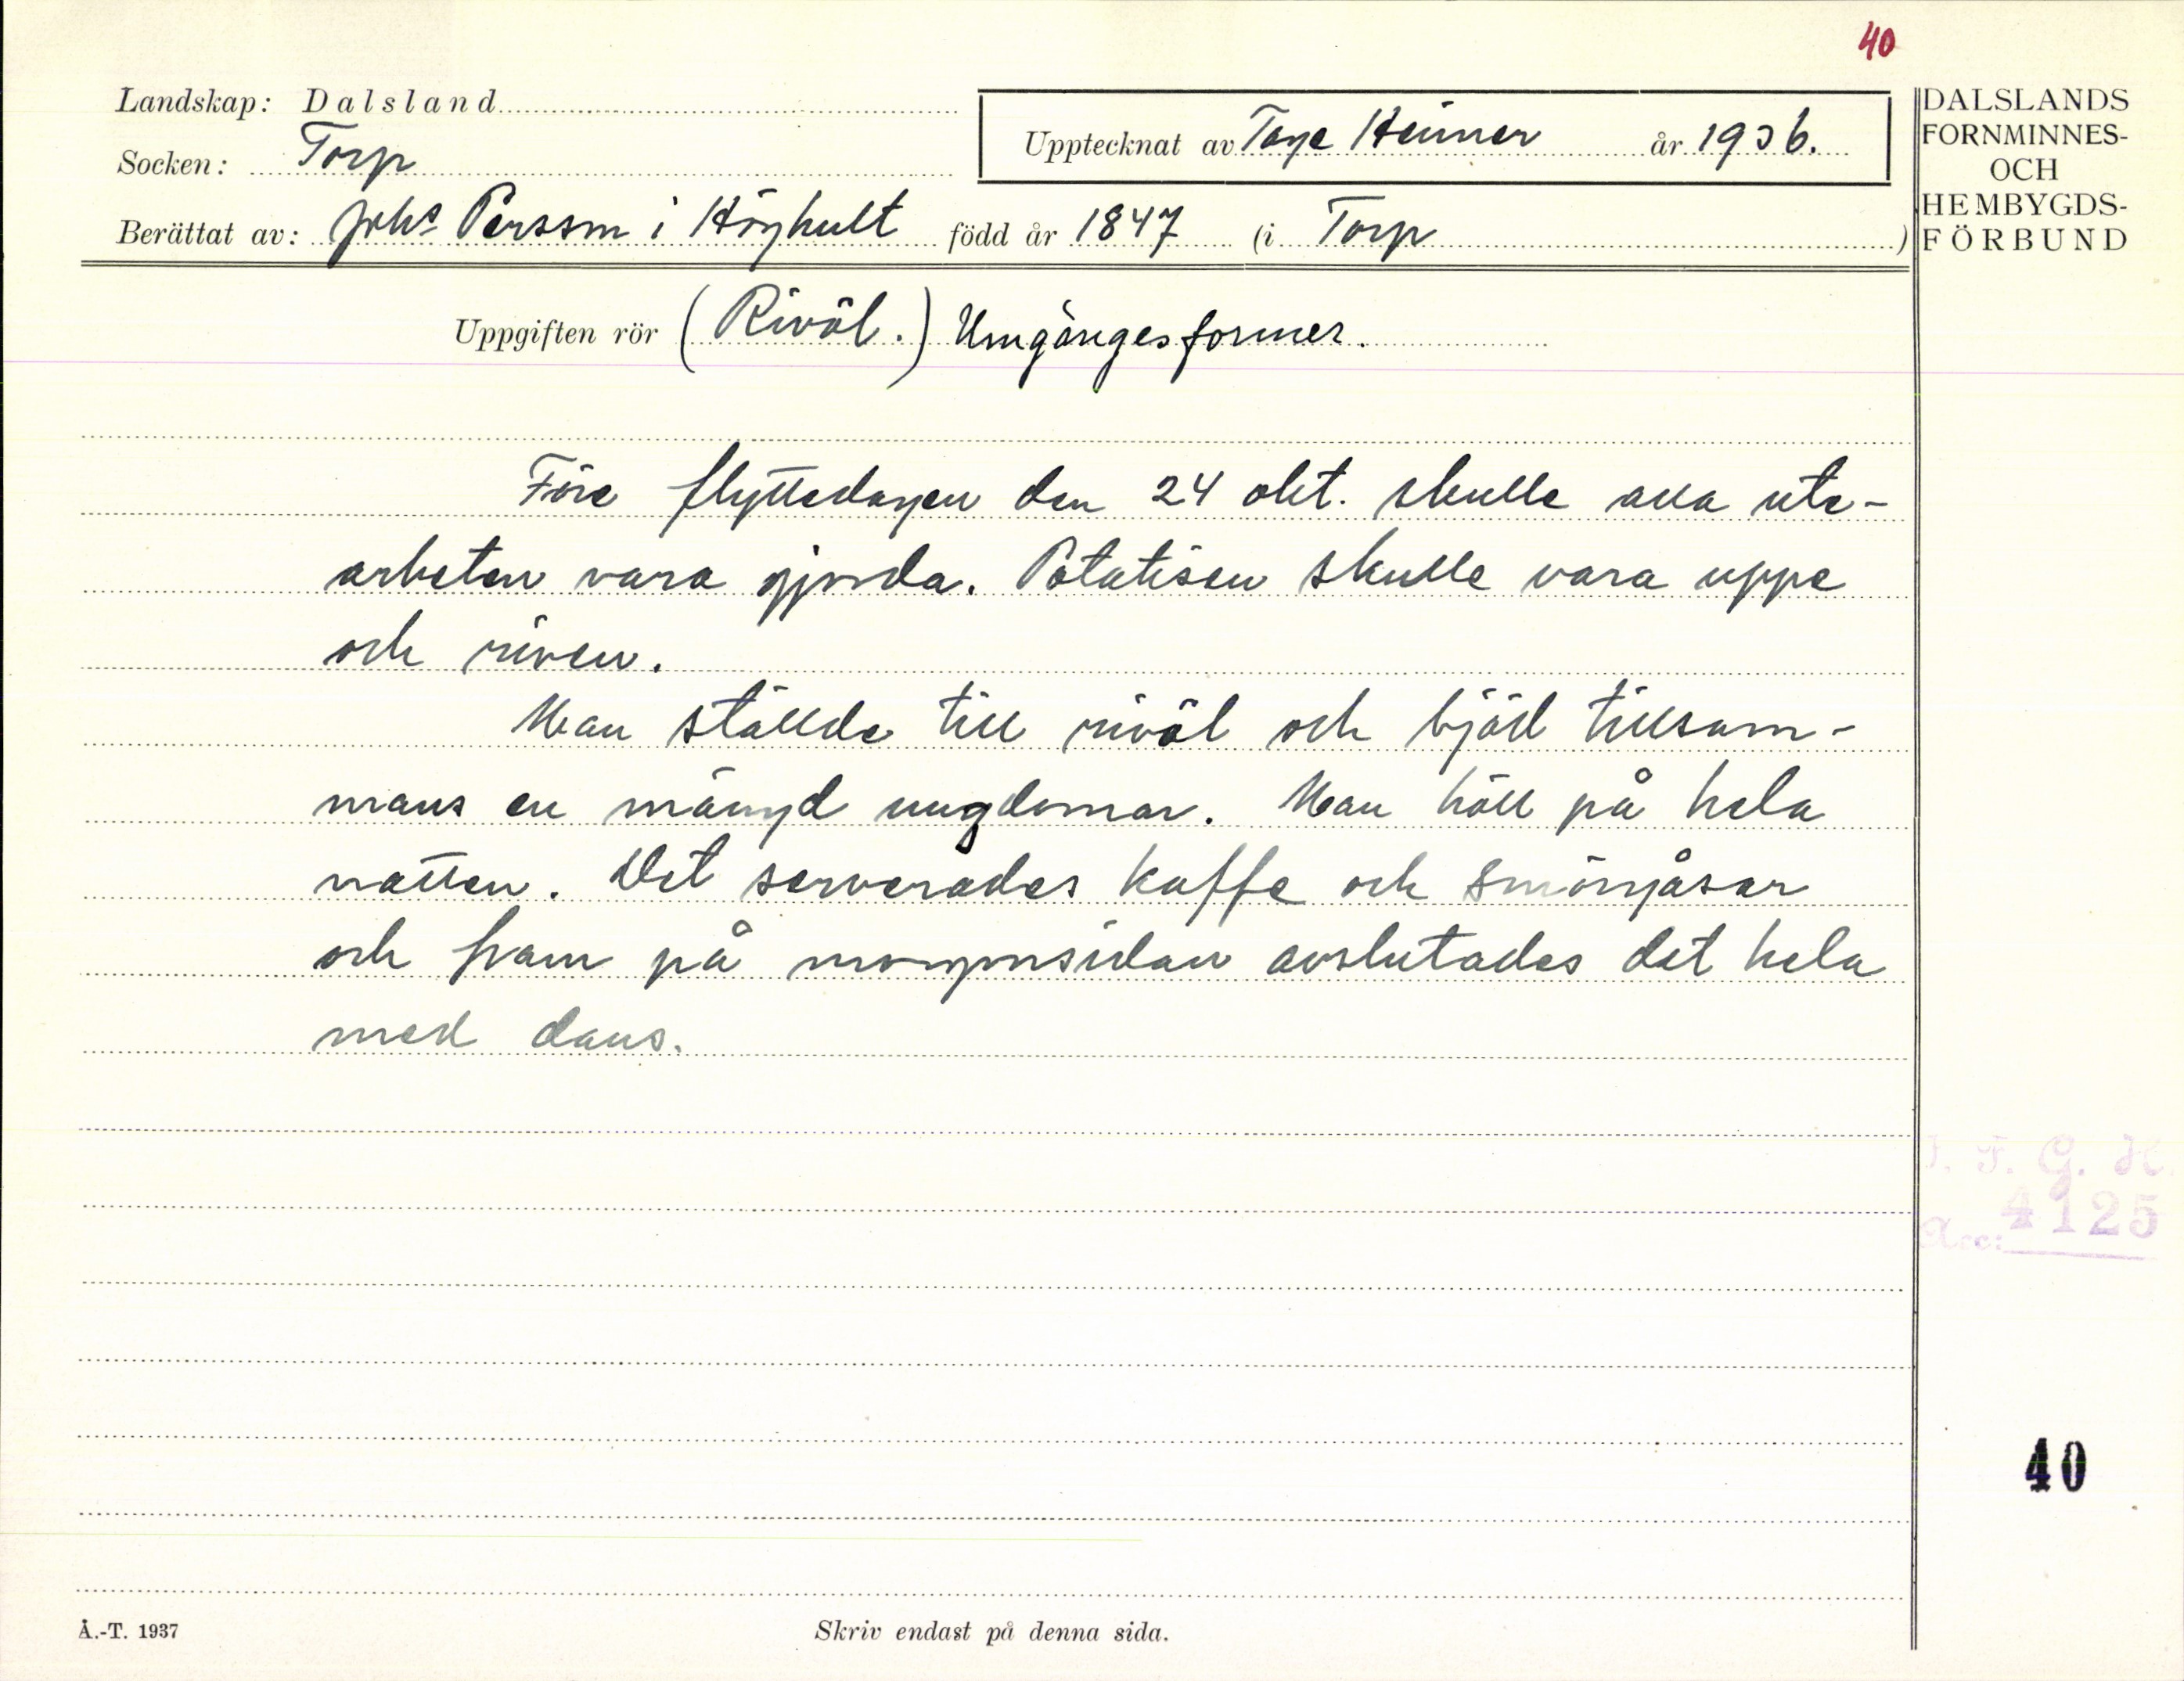 40
Landskap: Dalsland
Socken: Torp
Upptecknat av Tage Heimer år 1936.
Berättat av: Johs Persson i Höghult född år 1847 (i Torp)
DALSLANDS
FORNMINNES-
OCH
HEMBYGDS-
FÖRBUND
Uppgiften rör (Rivöl.) Umgängesformer.
Före flyttedagen den 24 okt. skulle alla ute-
arbeten vara gjorda. Potatisen skulle vara uppe
och riven.
Man ställde till rivöl och bjöd tillsam-
mans en mängd ungdomar. Man höll på hela
natten. Det serverades kaffe och smörgåsar
och fram på morgonsidan avslutades det hela
med dans.
I. F. G. H.
Acc: 4125
40
Å.-T. 1937
Skriv endast på denna sida.